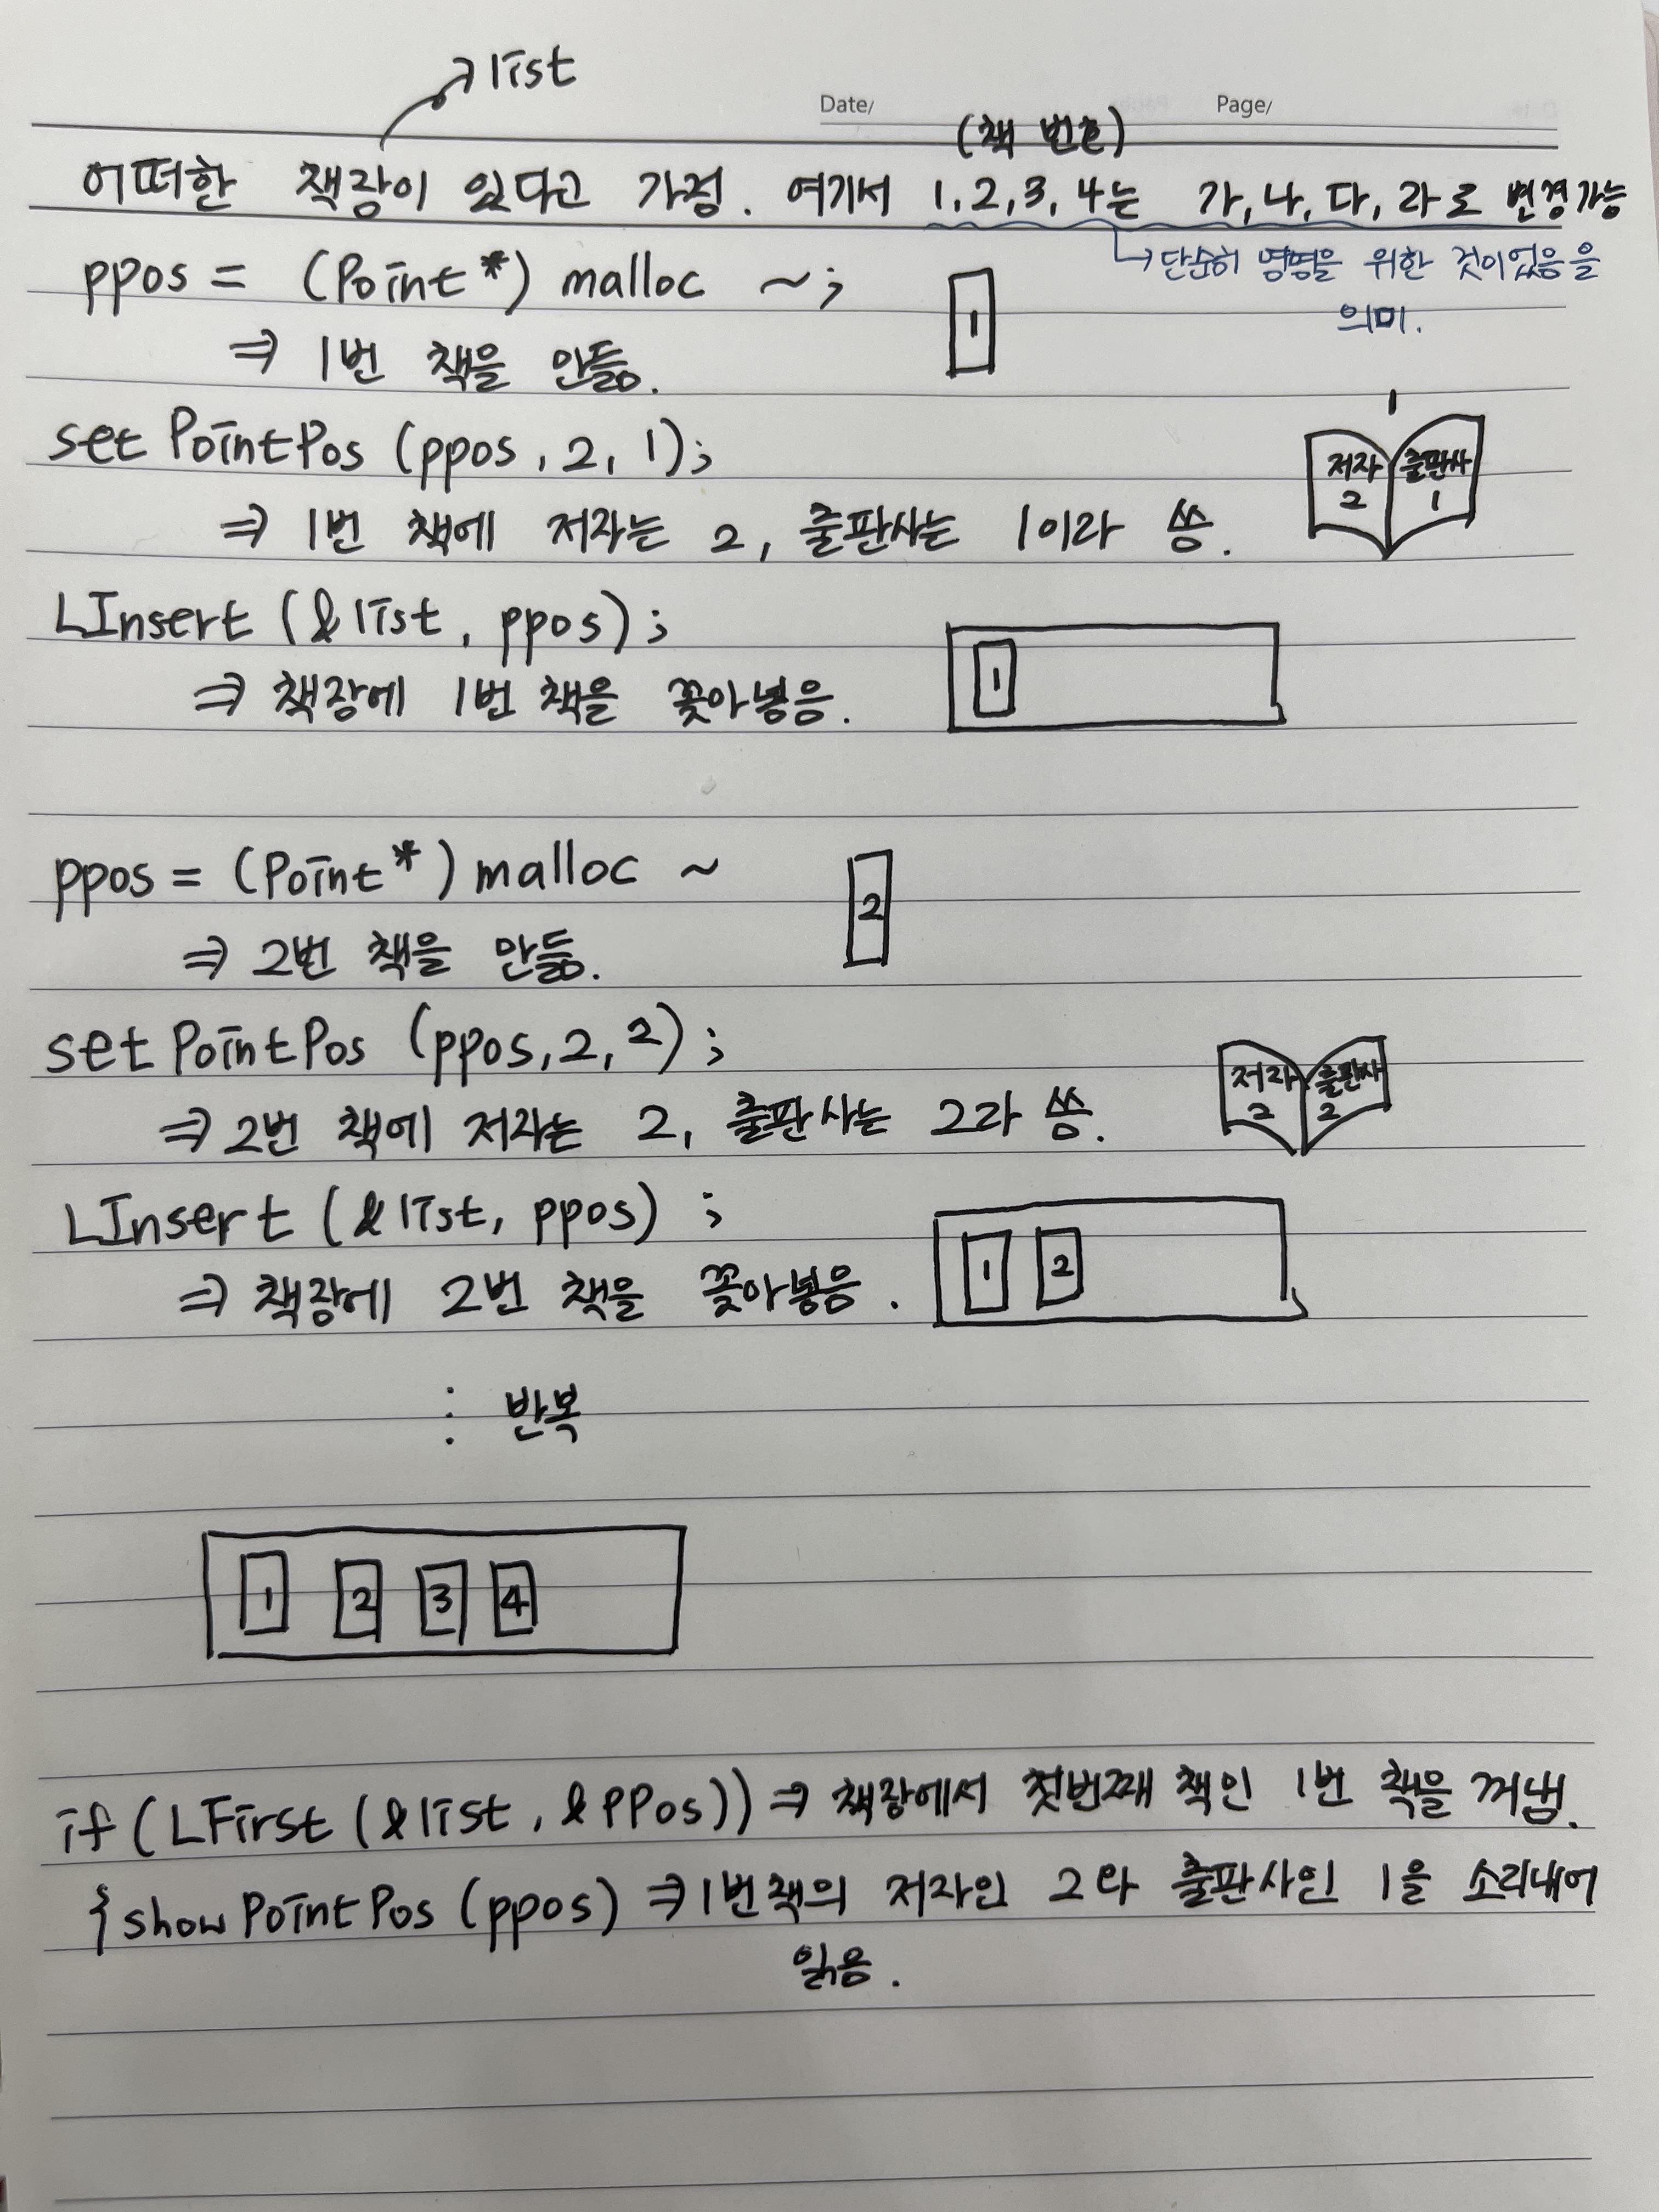 list
Date/ Page/
(책 번호)
어떠한 책장이 있다고 가정. 여기서 1,2,3,4는 가,나,다,라로 변경가능
↳단순히 명명을 위한 것이었음을
의미.
ppos = (Point*) malloc ~;
1
⇒ 1번 책을 만듦.
set PointPos (ppos, 2, 1);
1
저자 출판사
2 1
⇒ 1번 책에 저자는 2, 출판사는 1이라 씀.
LInsert (&list, ppos);
1
⇒ 책장에 1번 책을 꽂아넣음.
ppos = (Point*) malloc ~
2
⇒ 2번 책을 만듦.
set PointPos (ppos, 2, 2);
저자 출판사
2 2
⇒ 2번 책에 저자는 2, 출판사는 2라 씀.
LInsert (&list, ppos) ;
1 2
⇒ 책장에 2번 책을 꽂아넣음.
: 반복
1 2 3 4
if (LFirst (&list, &PPos)) ⇒ 책장에서 첫번째 책인 1번 책을 꺼냄.
{show PointPos (ppos) ⇒ 1번책의 저자인 2와 출판사인 1을 소리내어
읽음.